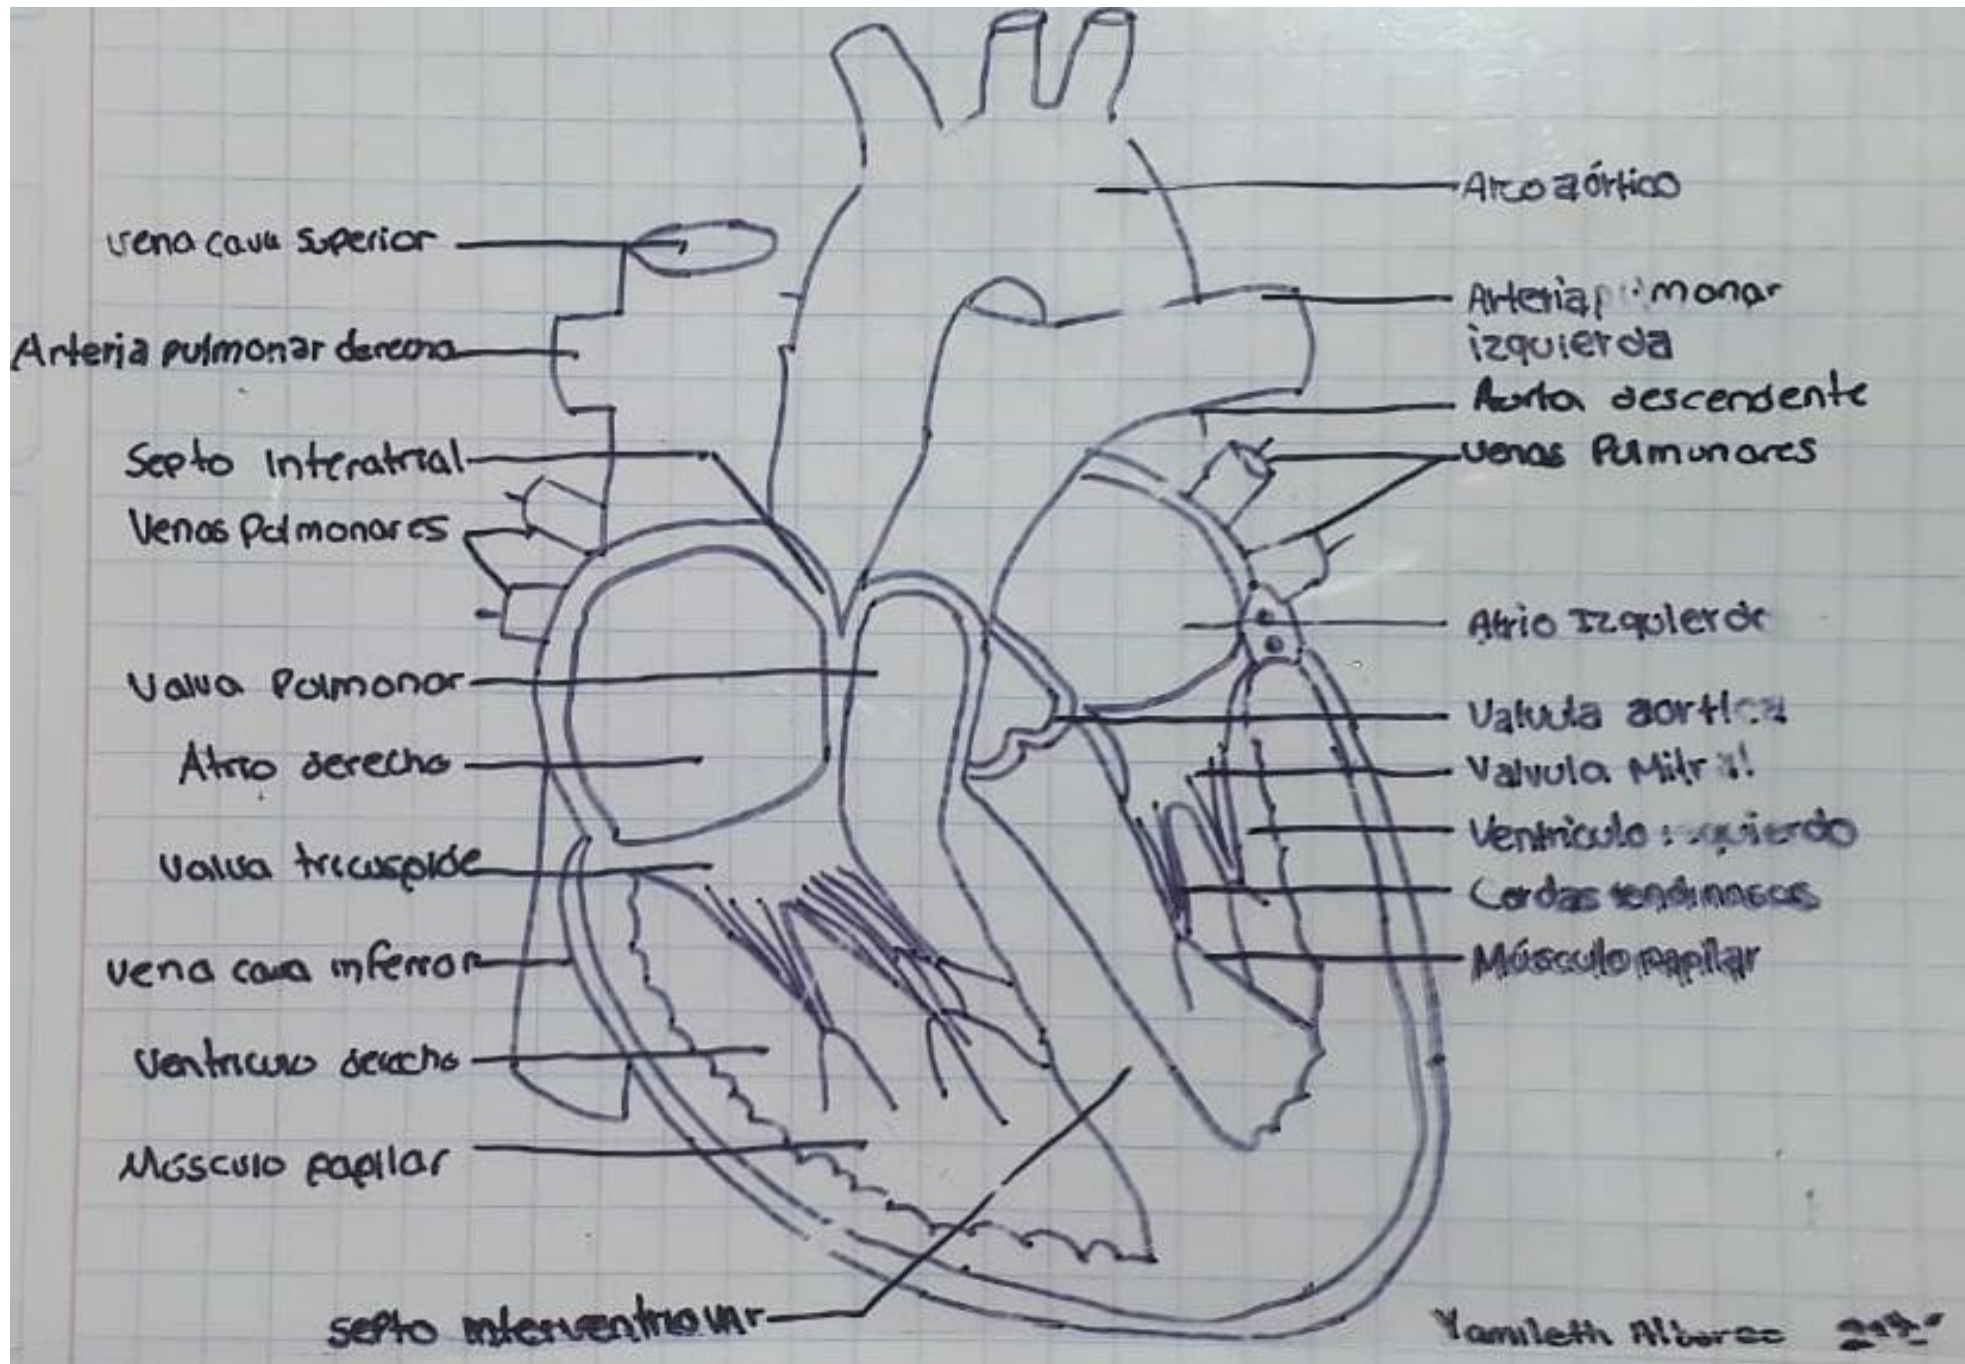 vena cava superior
Arteria pulmonar derecha
Septo Interatrial
Venas Pulmonares
Valva Pulmonar
Atrio derecho
Valva tricuspide
vena cava inferior
Ventriculo derecho
Músculo papilar
septo interventricular
Arco aórtico
Arteria pulmonar
izquierda
Aorta descendente
Venas Pulmunares
Atrio Izquierdo
Valvula aortica
Valvula Mitral
Ventriculo izquierdo
Cordas tendinosas
Músculo papilar
Yamileth